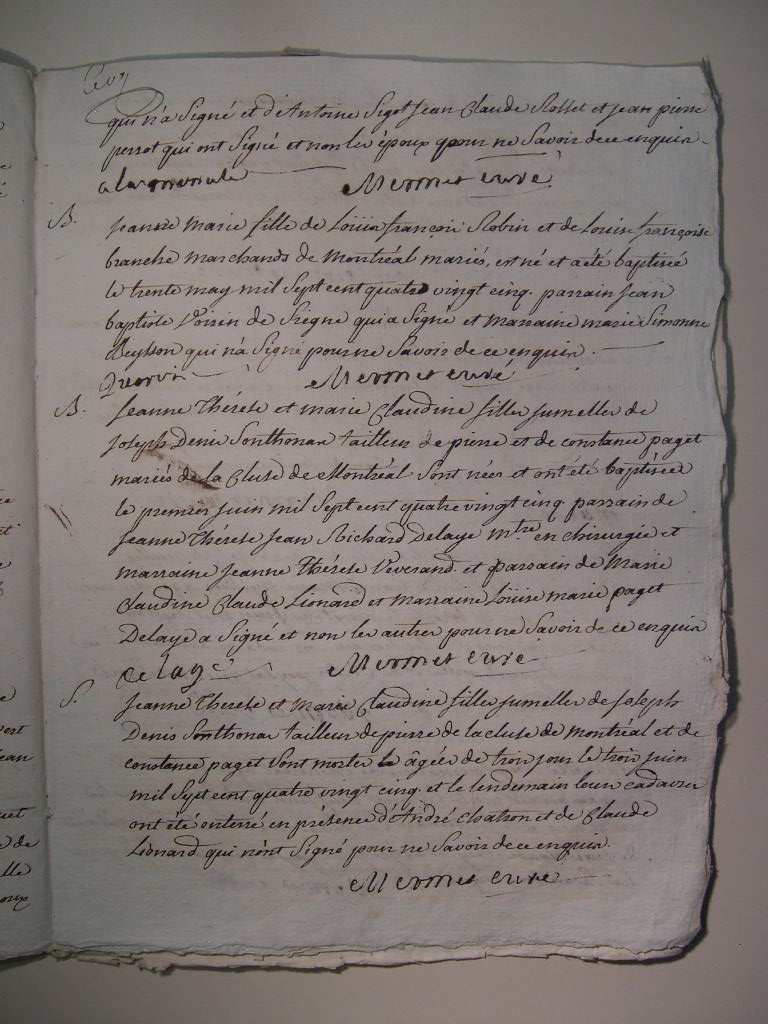 qui n'a Signé et d'Antoine Sigot Jean Claude Rosset et jean pierre
perrot qui ont Signé et non les époux pour ne Savoir de ce enquis
a la
Mermet curé
B. jeanne Marie fille de Loüis françois Robin et de Louise françoise
branche marchands de Montréal mariés, est né et a été baptisée
le trente may mil Sept cent quatre vingt cinq. parrain jean
baptiste Voisin de Siègne qui a Signé et marraine marie Simonne
qui n'a Signé pour ne Savoir de ce enquis.
Mermet curé
B. Jeanne Thérese et marie Claudine filles jumelles de
joseph Denis Sonthonax tailleur de pierre et de constance paget
mariés de la Cluse de Montréal Sont nées et ont été baptisées
le premier juin mil Sept cent quatre vingt cinq parrain de
jeanne Thérese jean Richard Delaye mtre en chirurgie et
marraine jeanne Thérese Veverand et parrain de Marie
Claudine Claude Lionard et marraine Loüise marie paget
Delaye a Signé et non les autres pour ne Savoir de ce enquis
Delaye
Mermet curé
S. jeanne Therese et Marie Claudine filles jumelles de joseph
Denis Sonthonax tailleur de pierre de la cluse de Montréal et de
constance paget Sont mortes âgées de trois jour le trois juin
mil Sept cent quatre vingt cinq et le lendemain leurs cadavres
ont été enterré en présence d'André Chatron et de Claude
Lionard qui n'ont Signé pour ne Savoir de ce enquis.
Mermet curé